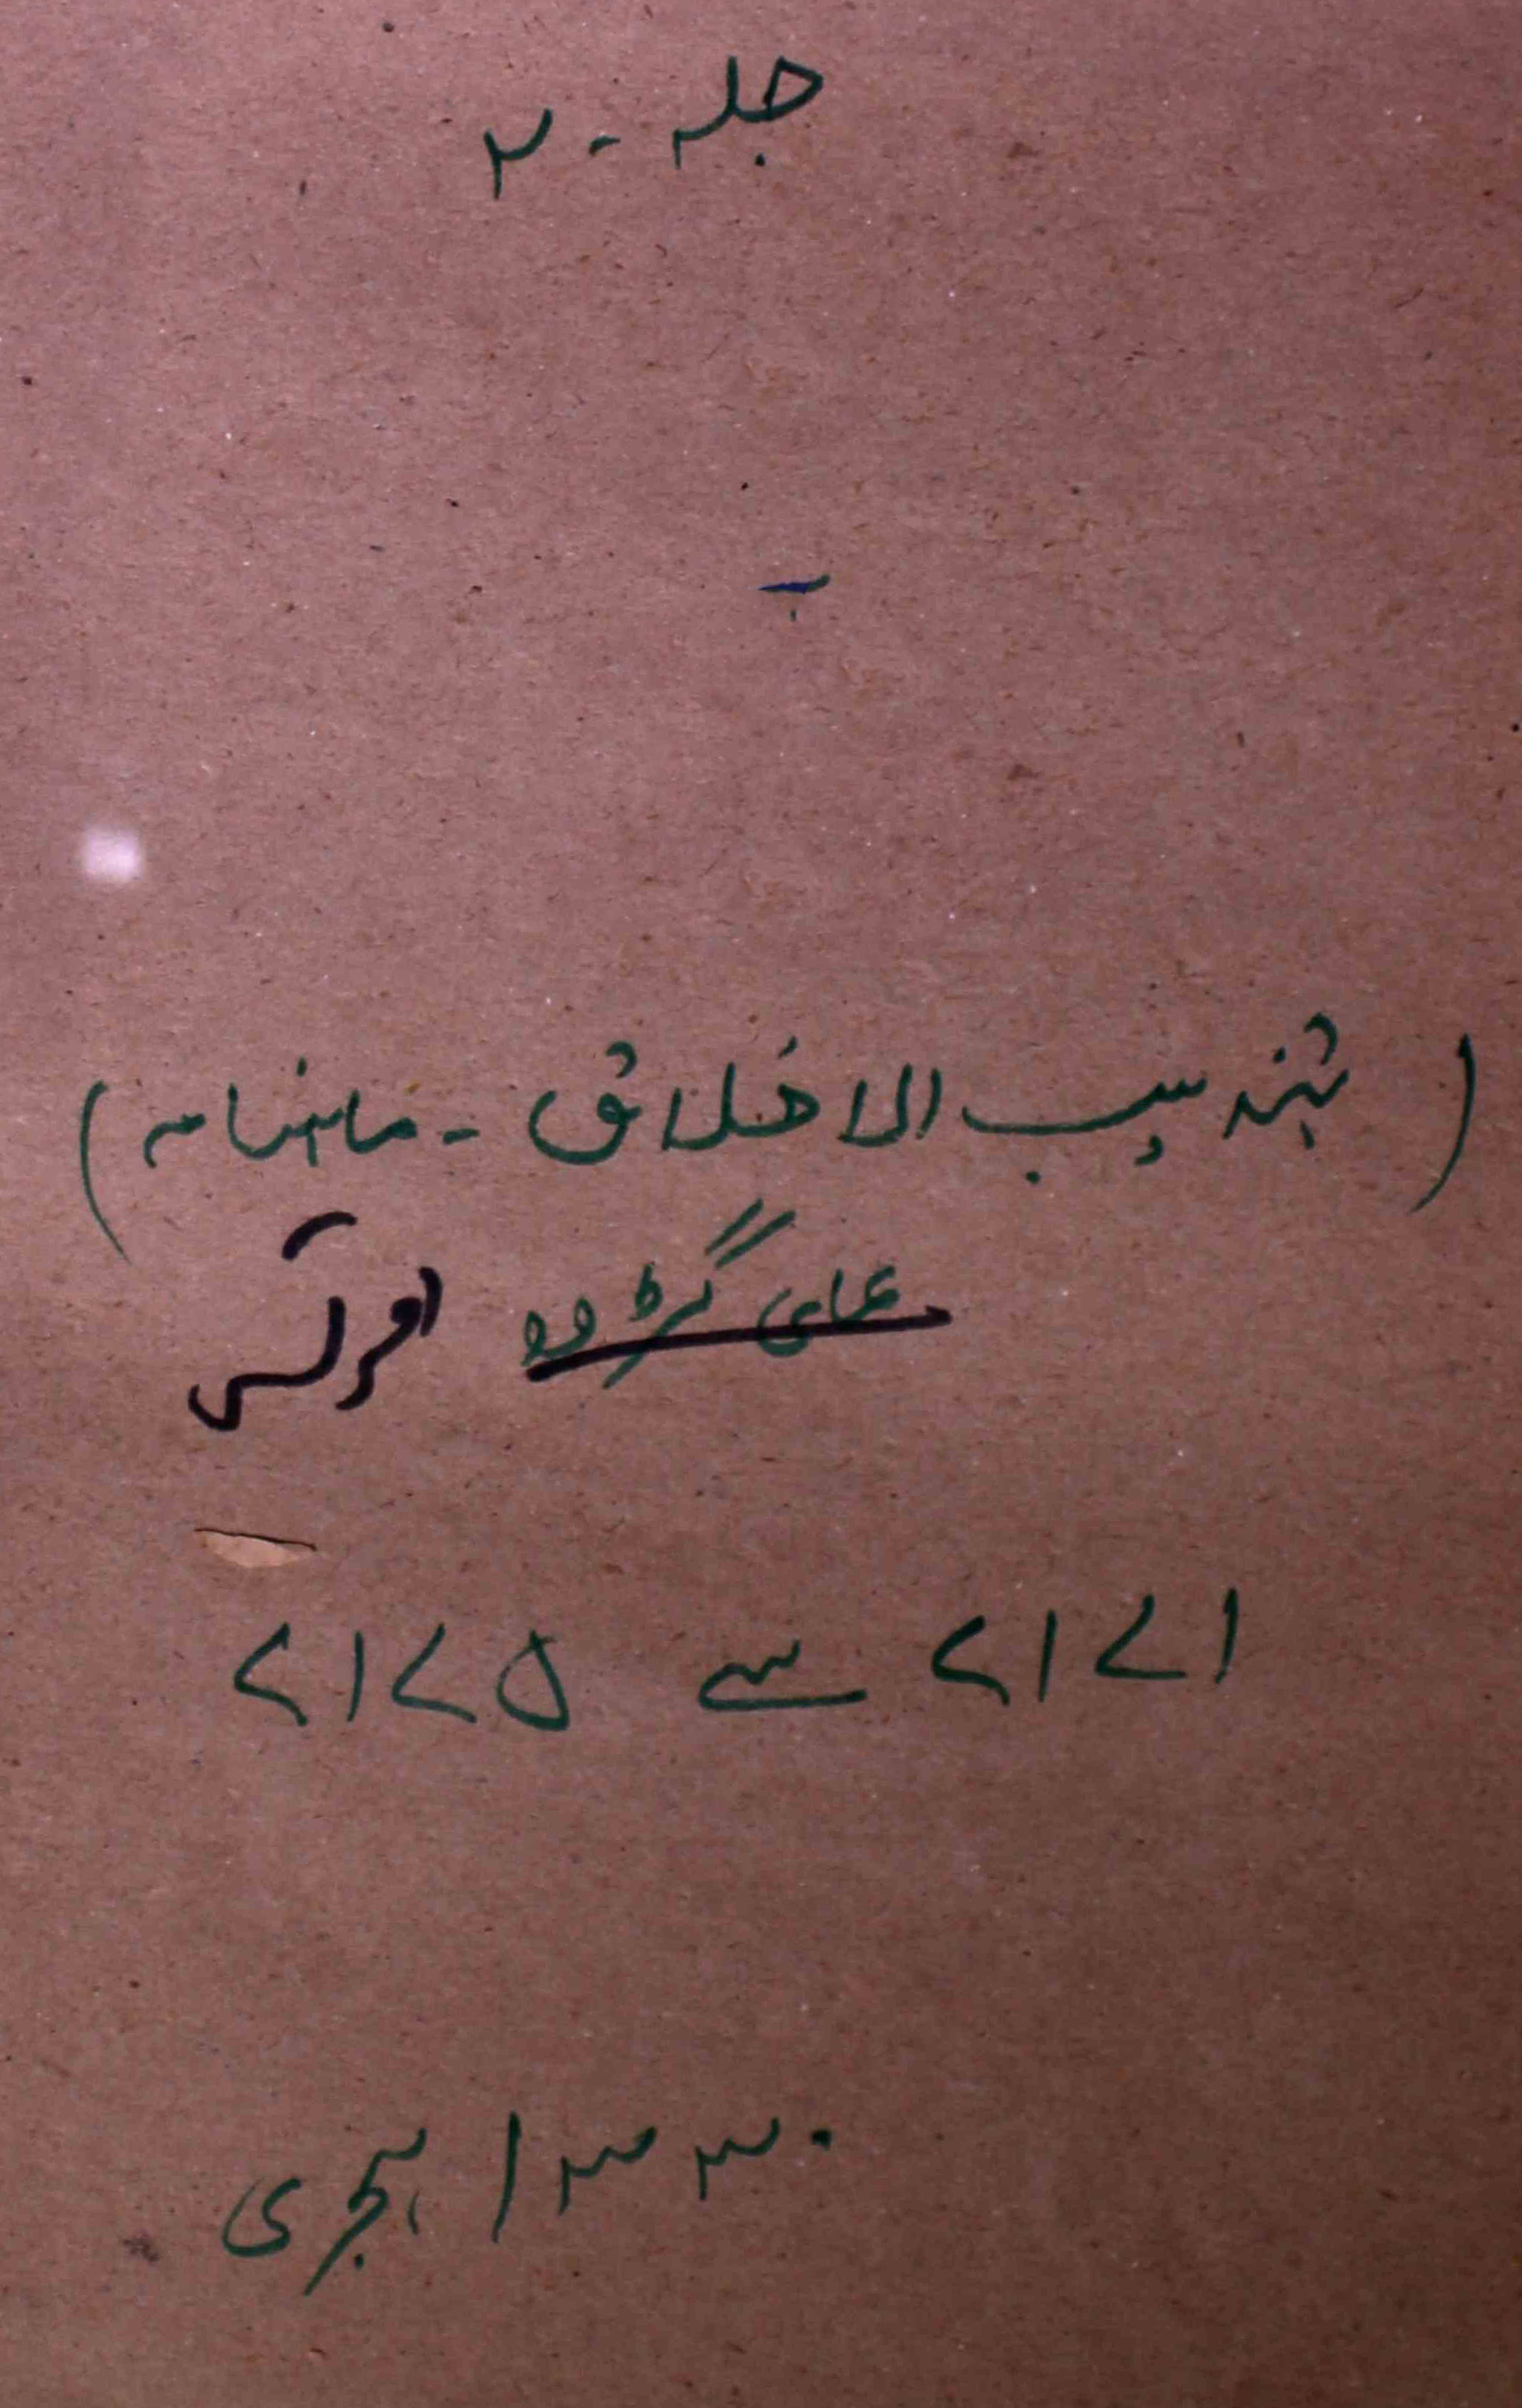 جلد - ۲
(تہذیب الاخلاق - ماہنامہ)
علی گڑھ امرتسر
۲۱۷۱ سے ۲۱۷۵
۱۳۳۰ ہجری